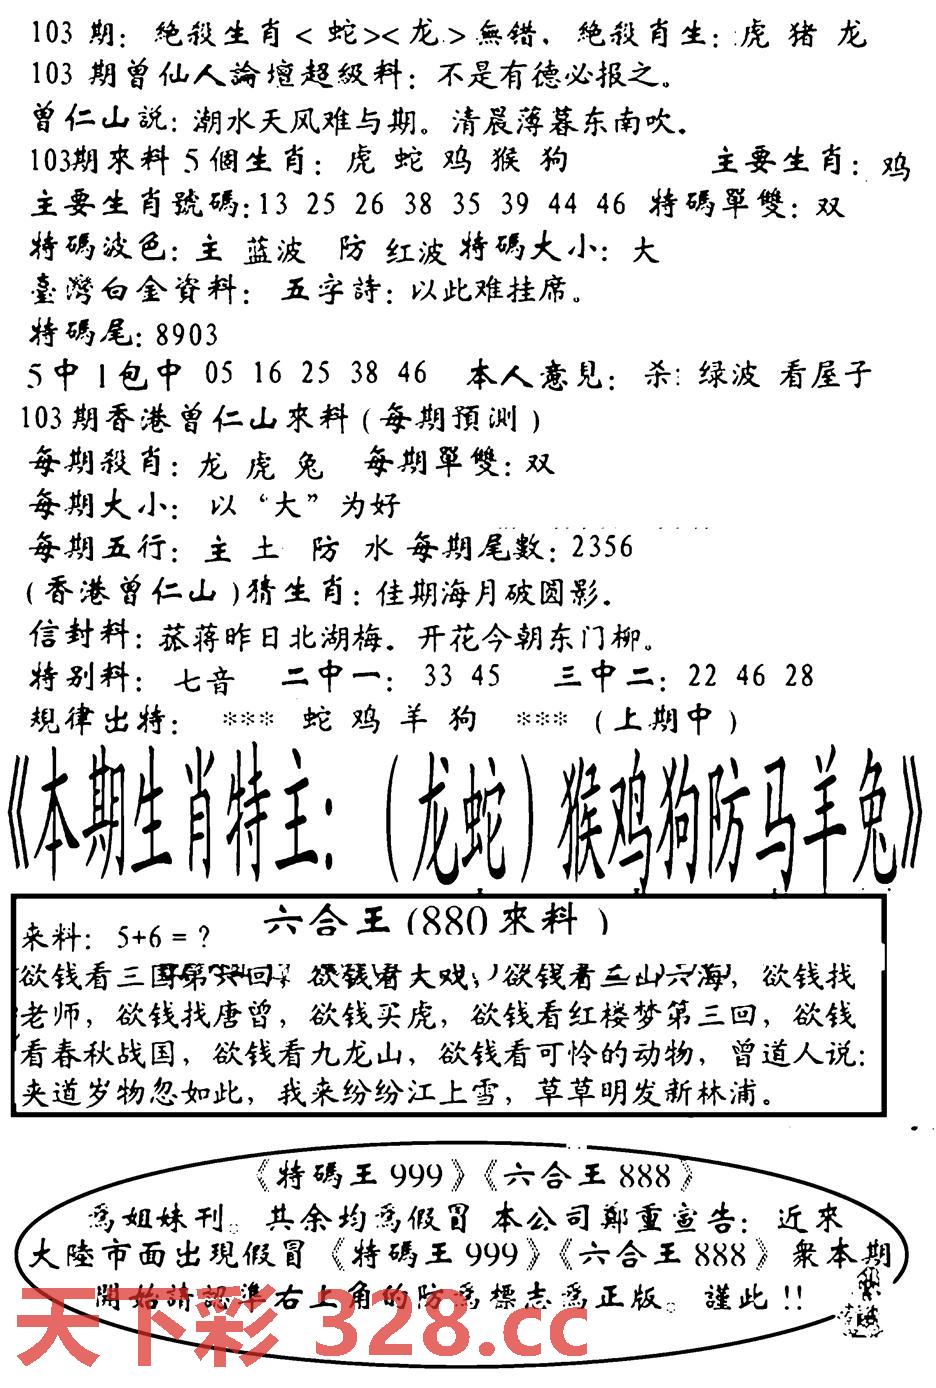 103 期: 絶殺生肖 < 蛇 >< 龙 > 無错, 絶殺肖生: 虎 猪 龙
103 期曾仙人論壇超級料: 不是有德必报之。
曾仁山説: 潮水天风难与期。清晨薄暮东南吹.
103期來料 5 個生肖: 虎 蛇 鸡 猴 狗 主要生肖: 鸡
主要生肖號碼: 13 25 26 38 35 39 44 46 特碼單雙: 双
特碼波色: 主 蓝波 防 红波 特碼大小: 大
臺灣白金資料: 五字詩: 以此难挂席。
特碼尾: 8903
5 中 1 包中 05 16 25 38 46 本人意見: 杀: 绿波 看屋子
103 期香港曾仁山來料 ( 每期預測 )
每期殺肖: 龙 虎 兔 每期單雙: 双
每期大小: 以“大”为好
每期五行: 主 土 防 水 每期尾數: 2356
( 香港曾仁山 ) 猜生肖: 佳期海月破圆影.
信封料: 菰蒋昨日北湖梅. 开花今朝东门柳。
特别料: 七音 二中一: 33 45 三中二: 22 46 28
規律出特: *** 蛇 鸡 羊 狗 *** ( 上期中 )
《本期生肖特主: (龙蛇) 猴鸡狗防马羊兔》
六合王 (880 來料 )
来料: 5+6 = ?
欲钱看三国第六回, 欲钱看大戏, 欲钱看三山六海, 欲钱找
老师, 欲钱找唐曾, 欲钱买虎, 欲钱看红楼梦第三回, 欲钱
看春秋战国, 欲钱看九龙山, 欲钱看可怜的动物, 曾道人说:
夹道岁物忽如此, 我来纷纷江上雪, 草草明发新林浦。
《特碼王 999》《六合王 888》
爲姐妹刊。其余均爲假冒 本公司鄭重宣告: 近來
大陸市面出現假冒《特碼王 999》《六合王 888》衆本期
開始請認準右上角的防爲標志爲正版。謹此 !!
天下彩 328.cc